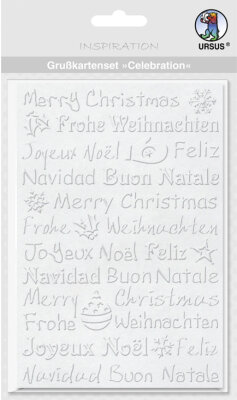 INSPIRATION
URSUS®
Grußkartenset »Celebration«
Merry Christmas
Frohe Weihnachten
Joyeux Noël Feliz
Navidad Buon Natale
Merry Christmas
Frohe Weihnachten
Joyeux Noël Feliz
Navidad Buon Natale
Merry Christmas
Frohe Weihnachten
Joyeux Noël Feliz
Navidad Buon Natale